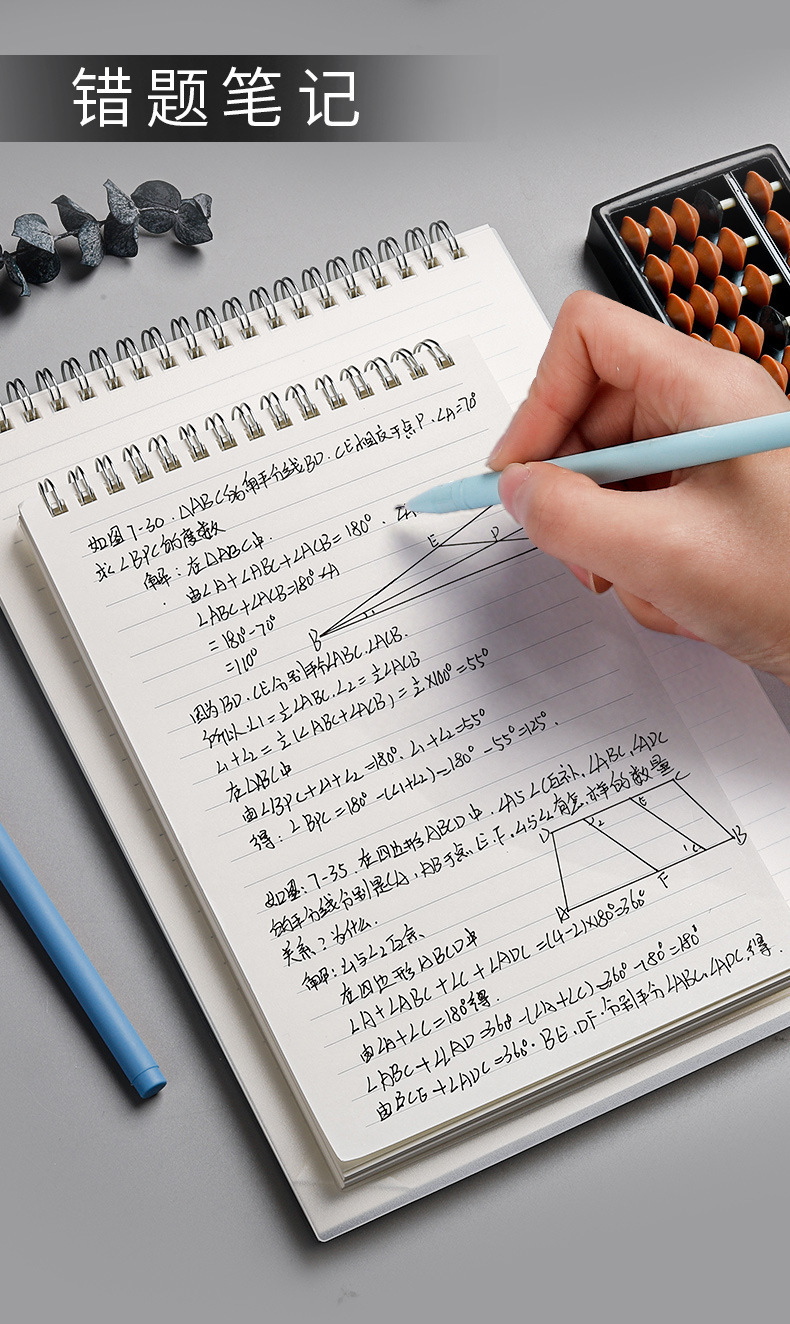 错题笔记
如图7-30.△ABC的角平分线BD.CE相交于点P.∠A=70°
求∠BPC的度数
解:在△ABC中.
由∠A+∠ABC+∠ACB=180°.∠A
∠ABC+∠ACB=180°-∠A
=180°-70°
=110°
E
P
B
因为BD.CE分别平分∠ABC.∠ACB.
所以.∠1=½∠ABC.∠2=½∠ACB
∠1+∠2=½(∠ABC+∠ACB)=½×100°=55°
在△ABC中
由∠BPC+∠1+∠2=180°.∠1+∠2=55°
得:∠BPC=180°-(∠1+∠2)=180°-55°=125°.
如图:7-35.在四边形ABCD中.∠A与∠C互补,∠ABC,∠ADC
的平分线分别是CA,AB于点.E.F.∠1与∠2有怎样的数量
关系?为什么.
D
2
E
C
B
1
F
A
解:∠1与∠2互余.
在四边形ABCD中
∠A+∠ABC+∠C+∠ADC=(4-2)×180°=360°
由∠A+∠C=180°得.
∠ABC+∠LAD=360°-(∠A+∠C)=360°-180°=180°
由BCE+∠ADC=360°.BE.DF.分别平分∠ABC,∠ADC,得.